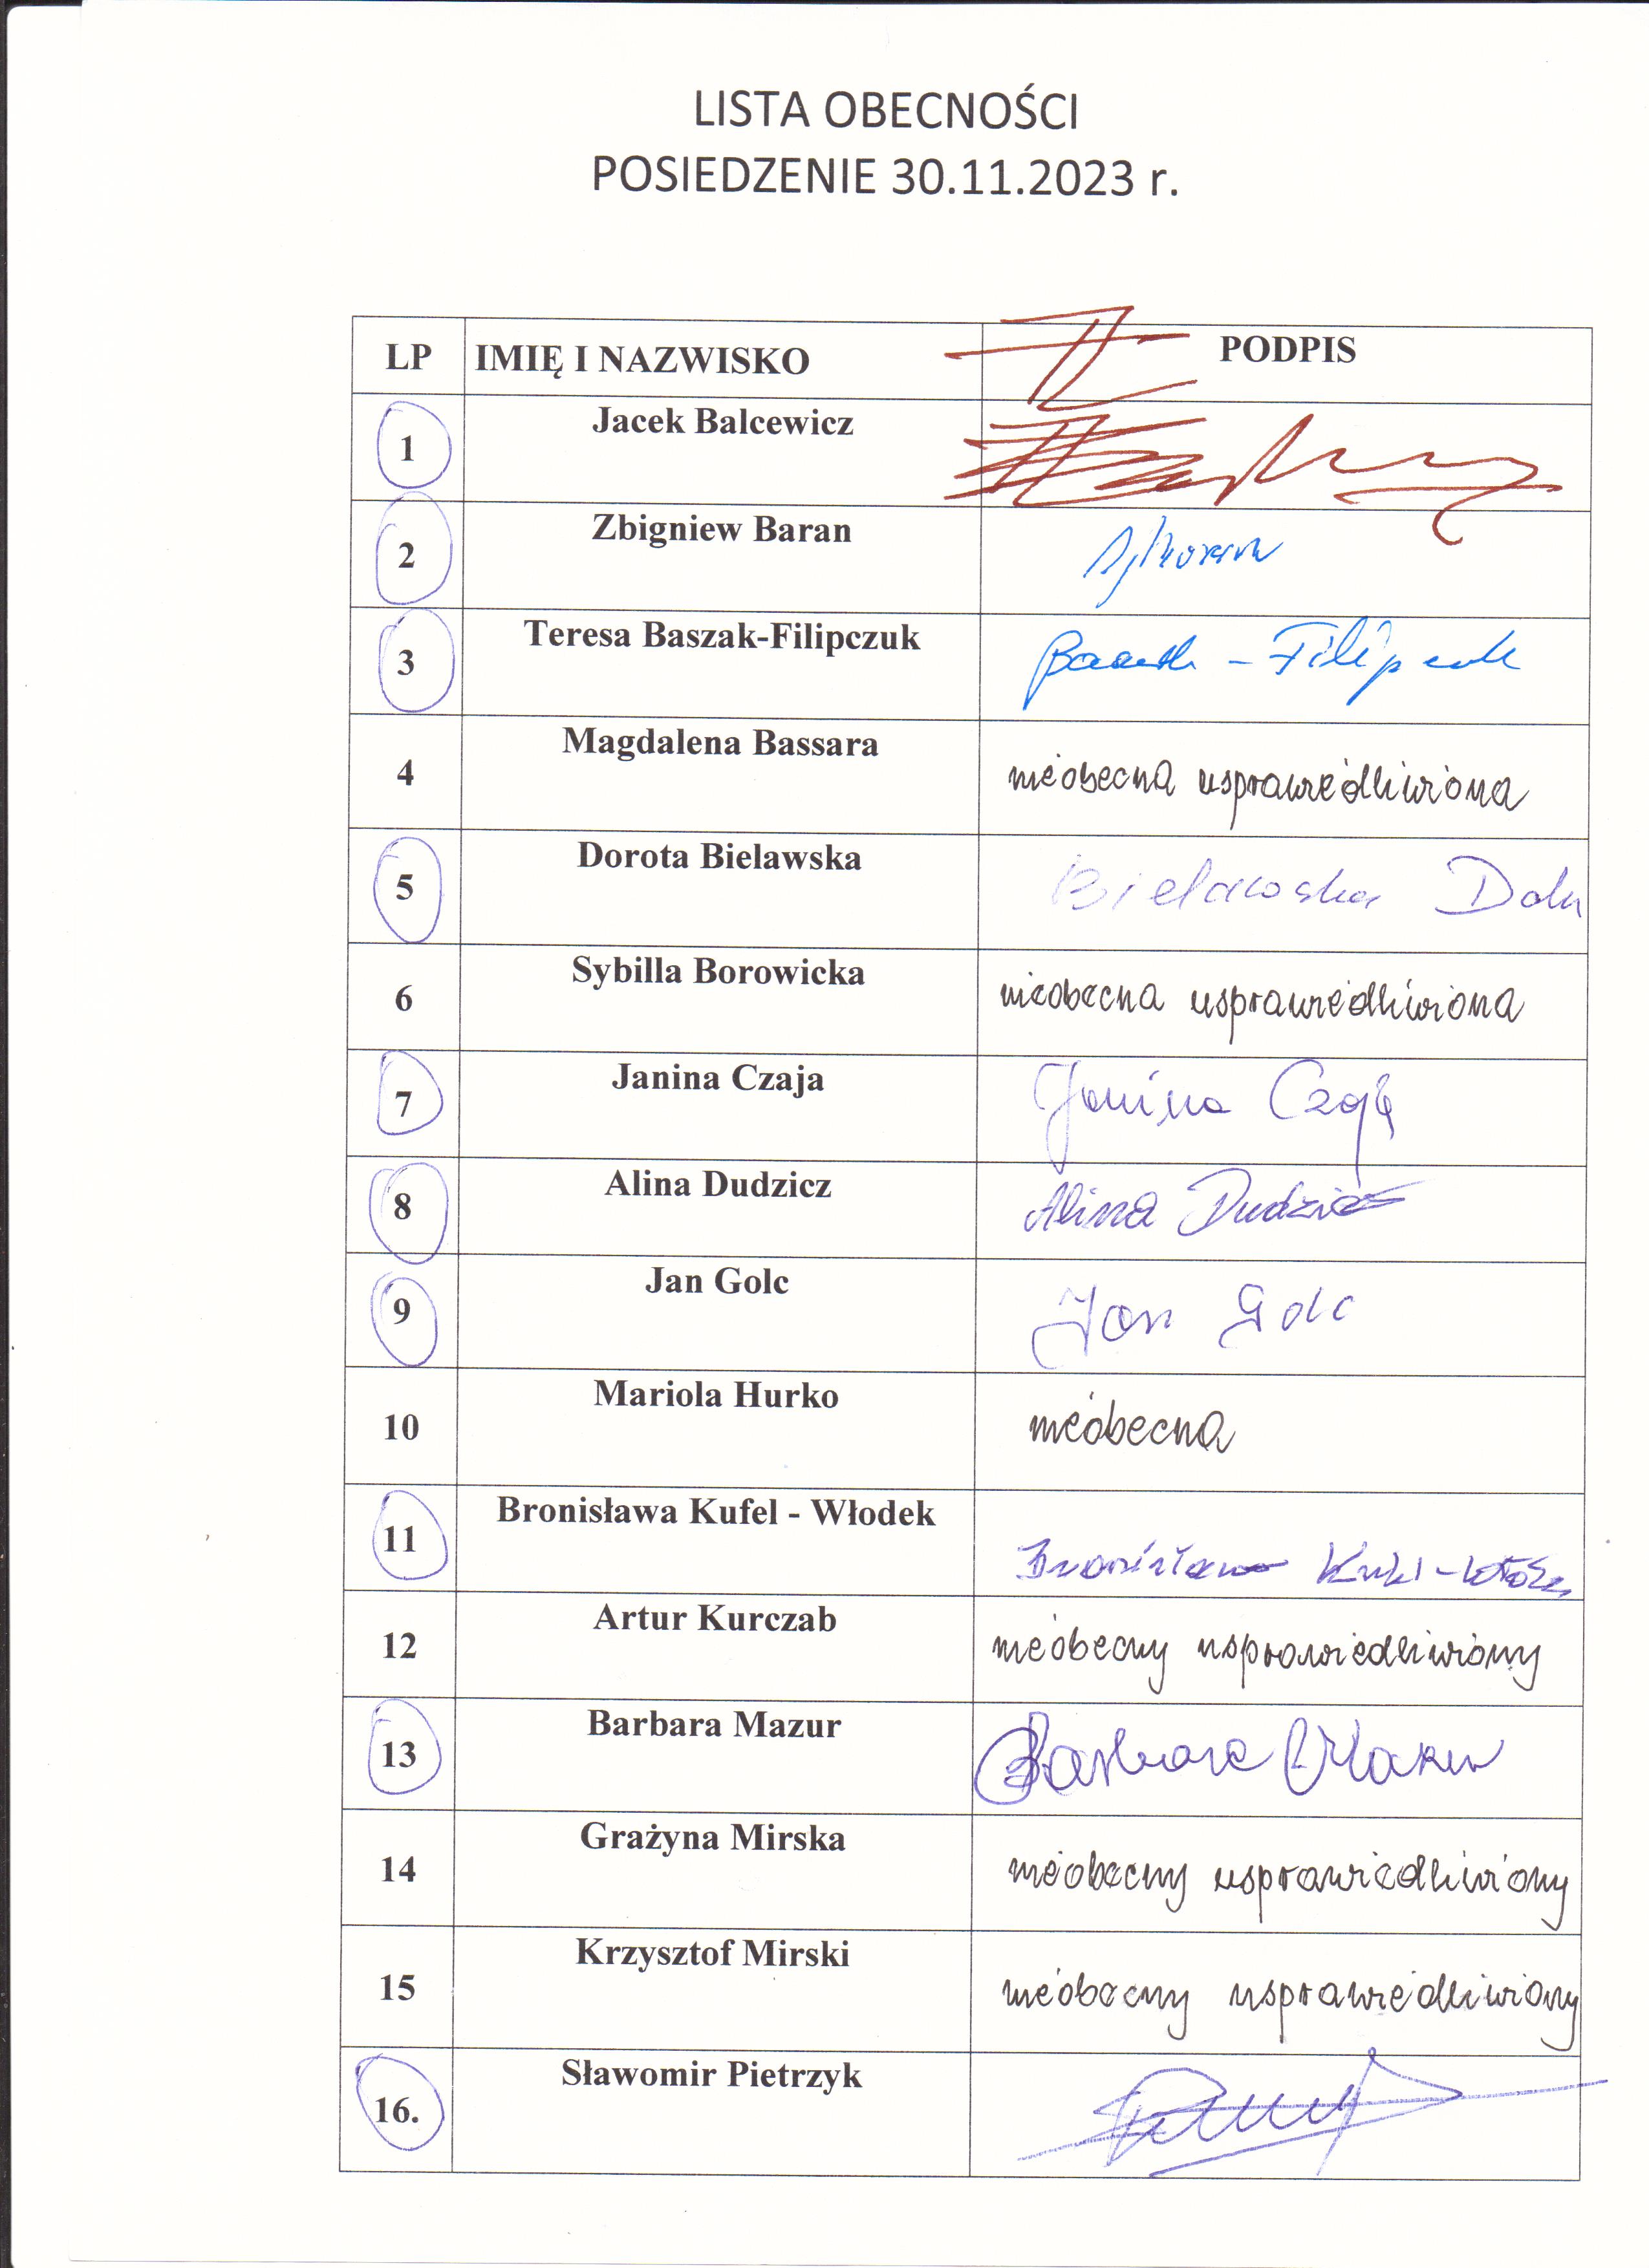 LISTA OBECNOŚCI
POSIEDZENIE 30.11.2023 r.
LP IMIĘ I NAZWISKO PODPIS
1 Jacek Balcewicz
2 Zbigniew Baran
3 Teresa Baszak-Filipczuk
4 Magdalena Bassara nieobecna usprawiedliwiona
5 Dorota Bielawska Bielawska
6 Sybilla Borowicka nieobecna usprawiedliwiona
7 Janina Czaja Janina Czaja
8 Alina Dudzicz Alina Dudzicz
9 Jan Golc Jan Golc
10 Mariola Hurko nieobecna
11 Bronisława Kufel - Włodek Bronisława
12 Artur Kurczab nieobecny usprawiedliwiony
13 Barbara Mazur Barbara Mazur
14 Grażyna Mirska nieobecny usprawiedliwiony
15 Krzysztof Mirski nieobecny usprawiedliwiony
16. Sławomir Pietrzyk